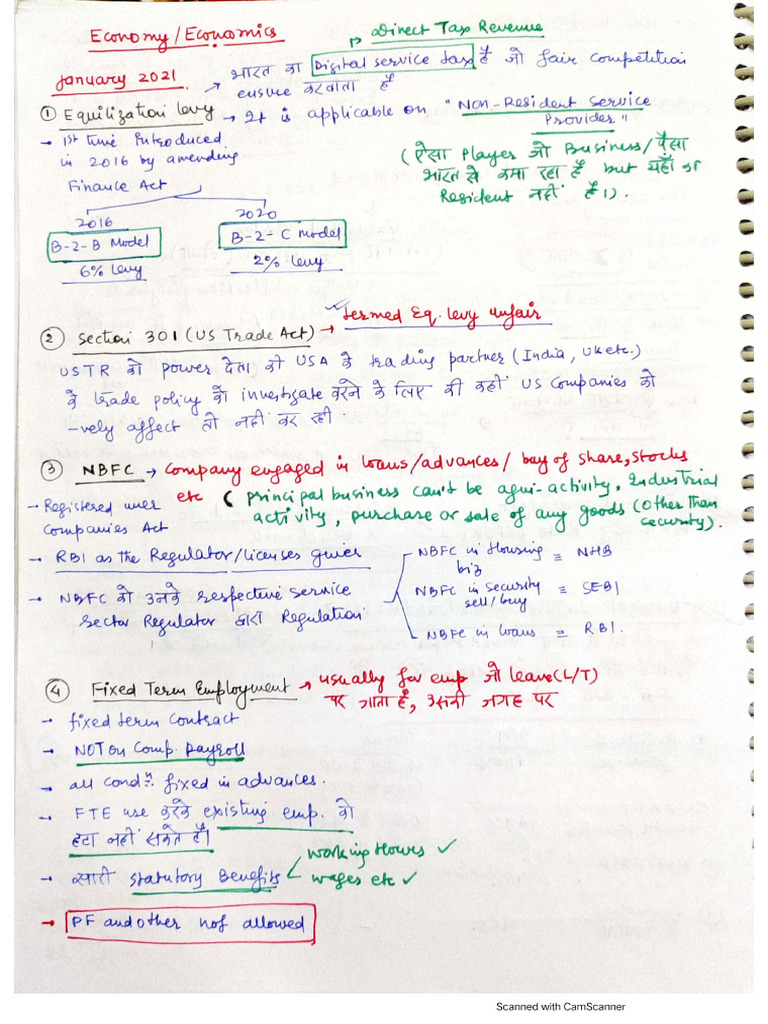 Economy/Economics
Direct Tax Revenue
January 2021
→ भारत का Digital service tax है जो fair competition
ensure करवाता है
① Equilization levy → It is applicable on "Non-Resident Service
Provider"
→ 1st time Introduced
in 2016 by amending
Finance Act
(ऐसा Player जो Business/पैसा
भारत से कमा रहा है but यहाँ का
Resident नहीं है।).
2016
2020
B-2-B Model
B-2-C model
6% levy
2% levy
② Section 301 (US Trade Act) → termed Eq. levy unfair
USTR को power देता की USA के trading partner (India, UK etc.)
के trade policy को investigate करने के लिए की कहीं US Companies को
-vely affect तो नहीं कर रही.
③ NBFC → Company engaged in loans/advances/ buy of share, stocks
etc (principal business can't be agri-activity, Industrial
activity, purchase or sale of any goods (other than
security).
→ Registered uner
Companies Act
→ RBI as the Regulator/licenses giver
→ NBFC को उनके respective service
sector Regulator द्वारा Regulation
NBFC in Housing biz ≡ NHB
NBFC in security sell/buy ≡ SEBI
NBFC in loans ≡ RBI.
④ Fixed Term Employment → usually for emp जो leave (L/T)
पर जाता है, उसकी जगह पर
→ fixed term contract
→ NOT on Comp. payroll
→ all condn. fixed in advances.
→ FTE use करके existing emp. को
हटा नहीं सकते है।
→ सारी statutory Benefits
working Hours ✓
wages etc ✓
→ PF and other not allowed
Scanned with CamScanner